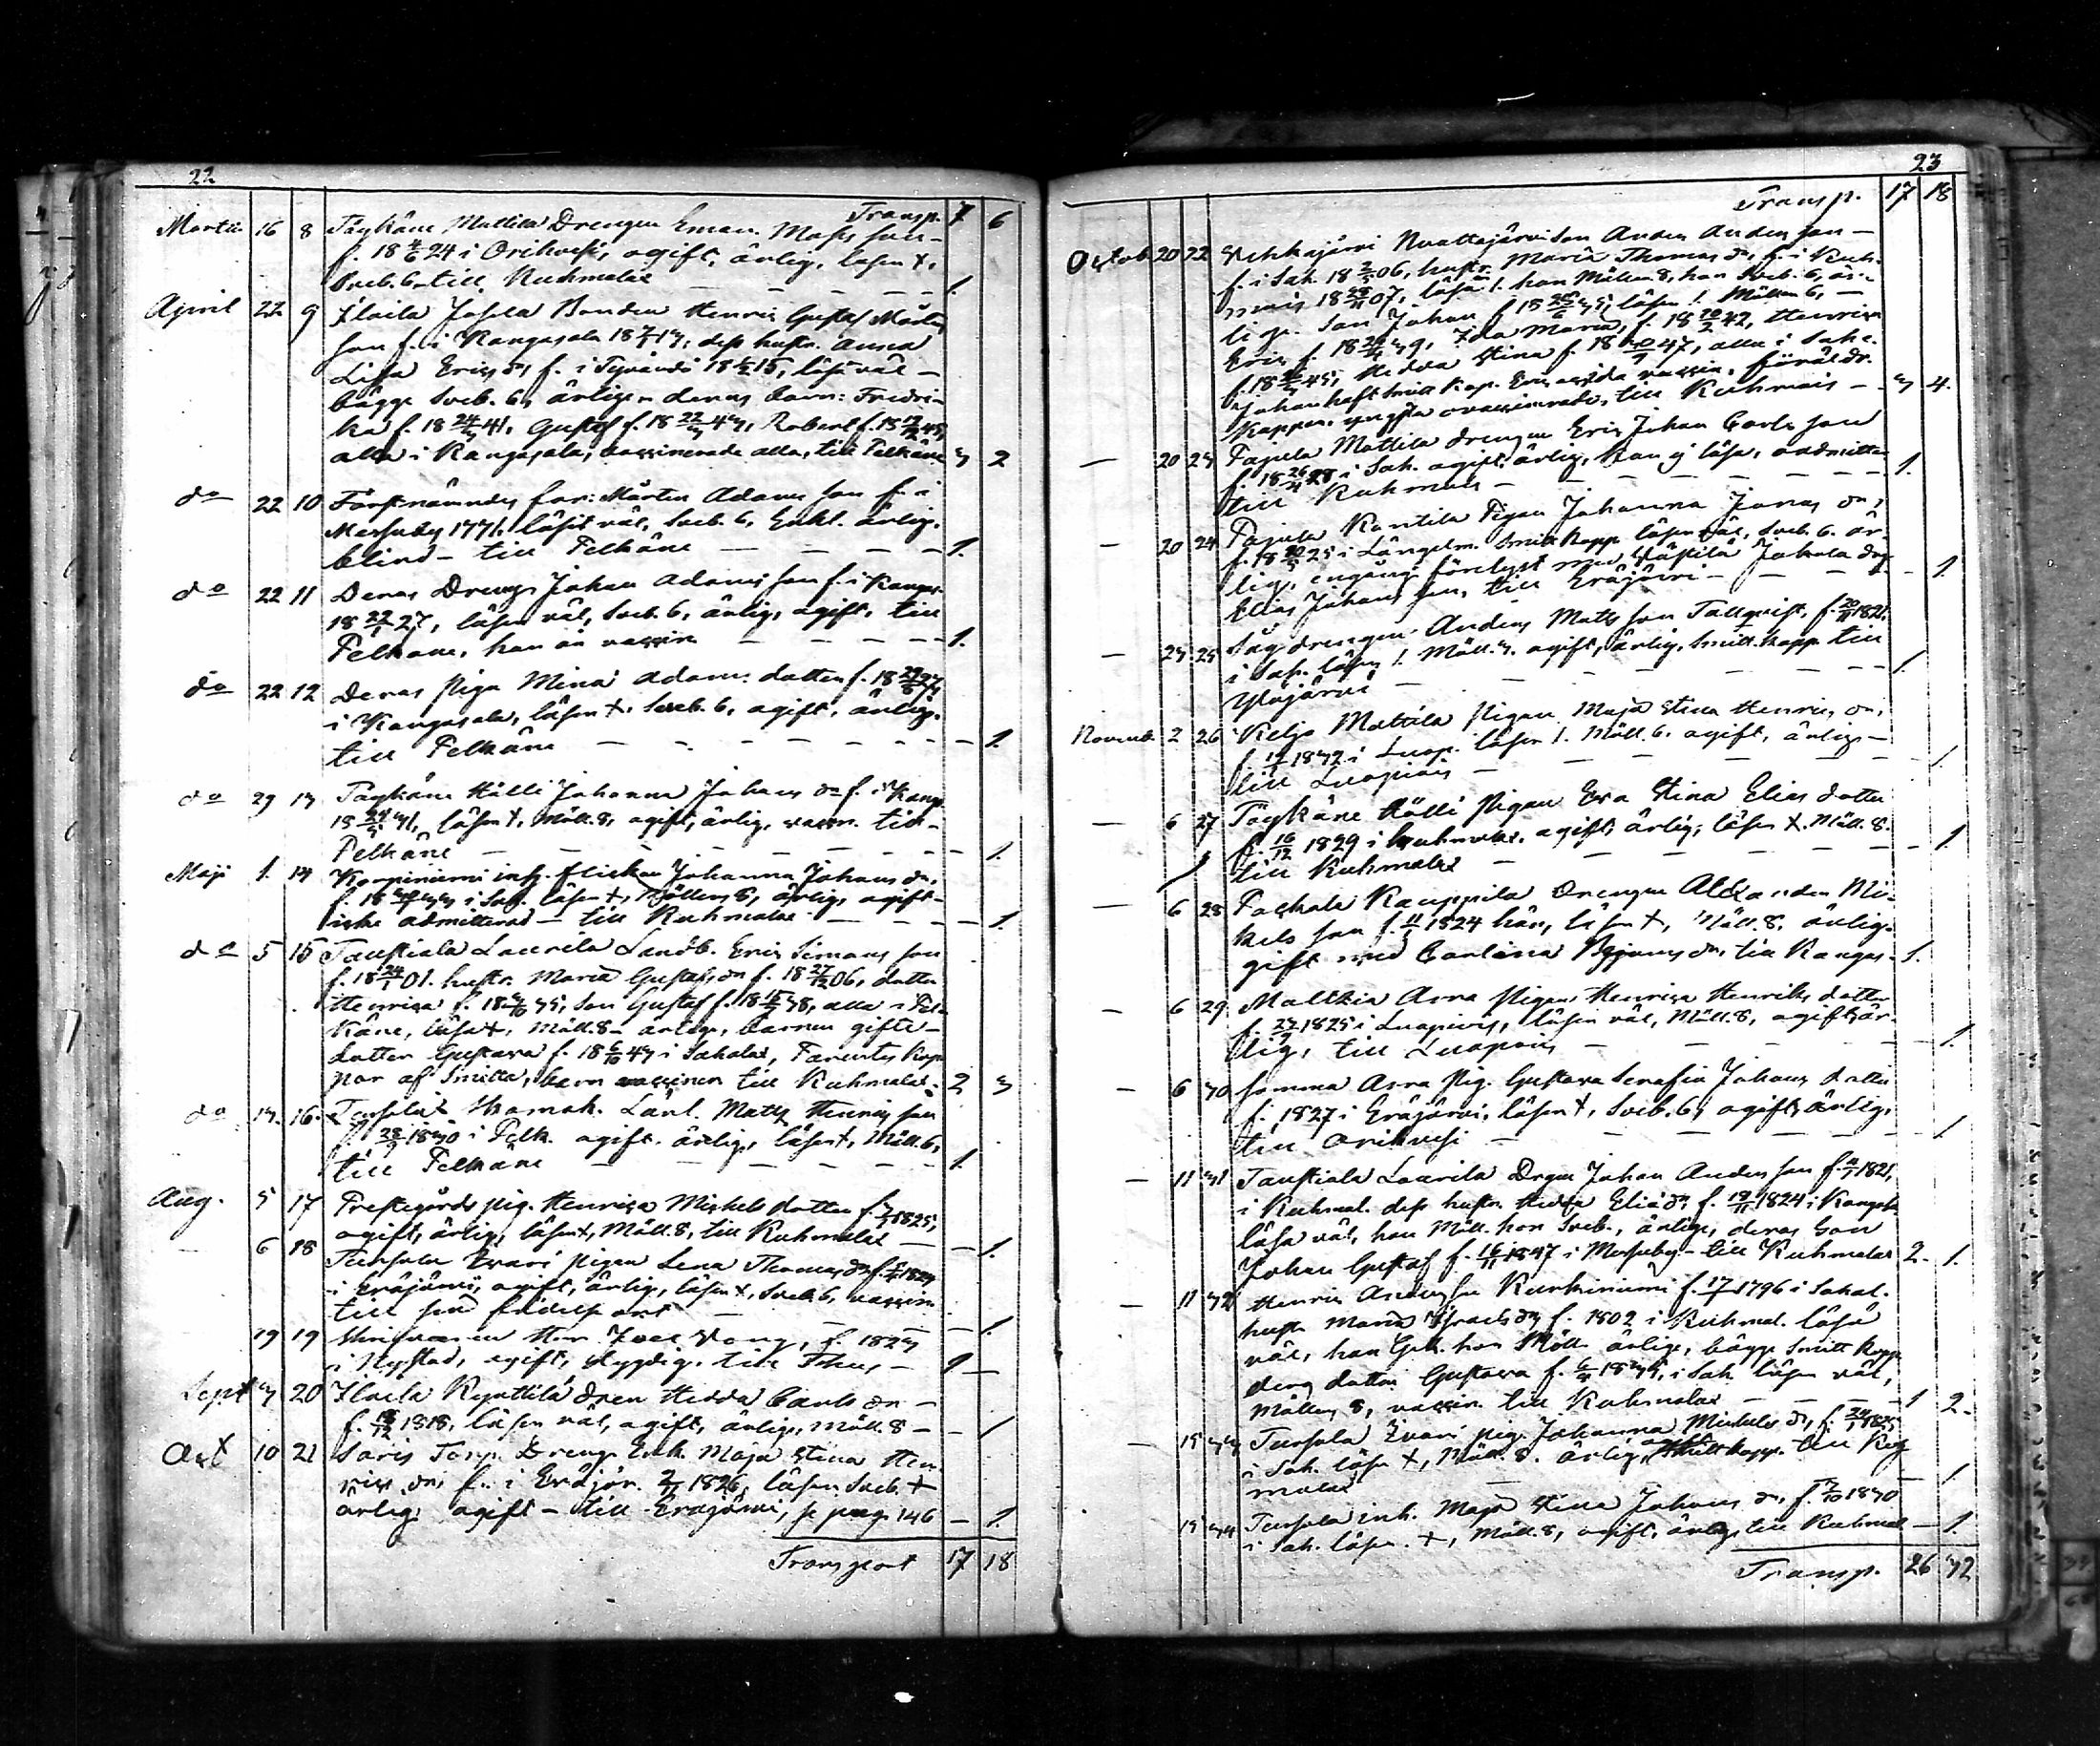 22
Transp. 7 6
Martii 16 8 Täykäne Mattila Drengen Eman. Mats son
f. 18 24 i Orihvesi, ogift, ärlig, läser +,
Sveb. 6 till Kuhmalax 1.
April 22 9 Ilmila Josela Bonden Henric Gustaf Mårtens
son f. i Kangasala 18 17, dess hustr. Anna
Lisa Erics dr f. i Tyrvändö 18 15, läsa väl
bägge Sveb. 6, ärlige deras barn: Fredri-
ka f. 18 24/3 41, Gustaf f. 18 22/3 43, Robert f. 18 45,
alla i Kangasala, vaccinerade alla, till Pelkäne 3 2
do 22 10 Förstnämndes far: Mårten Adams son f. i
Messuby 1771, läsit väl, Sveb. 6, Enkl. ärlig.
blind - till Pelkäne 1.
do 22 11 Deras Dreng Johan Adams son f. i Kangas.
18 22/1 27, läser väl, Sveb. 6, ärlig, ogift, till
Pelkäne, han är vaccin 1.
do 22 12 Deras Piga Mina Adams dotter f. 18
i Kangasala, läser +, Sveb. 6, ogift, ärlig.
till Pelkäne 1.
do 29 13 Täykäne Hälli Johanna Johans dr f. i Kang.
18 31, läser +, Möll. 8, ogift, ärlig, vaccin. till
Pelkäne 1.
Maji 1. 14 Korpiniemi inh. flickan Johanna Johans dr.
f. 18 33 i Sah. läser +, Möllers 8, ärlig, ogift
icke admitterad - till Kuhmalax 1.
do 5 15 Taustiala Laurila Landb. Eric Simons son
f. 18 24/1 01. hustr. Maria Gustafs dr f. 18 27/12 06, dotter
Henrica f. 18 35, Son Gustaf f. 18 38, alla i Pel-
käne, läsa +, Möll. 8 ärlige, barnen gifte
dotter Gustava f. 18 6/10 43 i Sahalax, Parentes kop-
por af Smitta, barn vaccinen till Kuhmalax. 2 3
do 13. 16. Tursola Låul. Matts Henrics son
f. 28 1830 i Pelk. ogift. ärlig, läser +, Möll. 6,
till Pelkäne 1.
Aug. 5 17 Prestegårds pig. Henrica Michels dotter f. 1825,
ogift, ärlig, läser +, Möll. 8, till Kuhmalax 1.
6 18 Tursola Iivari pigan Lena Thomas dr f. 1824
i Eräjärvi, ogift, ärlig, läser +, Sveb. 6, vaccin
till sin födelse ort 1.
19 19 Skrifvaren Herr Wang, f. 1823
i Nystad, ogift, dygdig. till 1
Sept 3 20 Ilmila Kynttilä Hedda Carls dr
f. 18/12 1818, läser väl, ogift, ärlig, Möll. 8 1
Oct 10 21 Saris Torp. Dreng Enk. Maja Stina Hen-
rics dr, f. i Eräjär. 1826, läser Sveb. +
ärlig, ogift - till Eräjärvi, se pag. 146 1.
Transport 17 18
23
Transp. 17 18
Octob. 20 22 Vehkajärvi Nuottajärvi Son Anders Anders son
f. i Sah. 18 06, hustr. Maria Thomas dr, f. i Kuh-
mois 18 28/11 07, läsa /. han Möllers 8, hon Sveb. 6, är-
lige. Son Johan f. 18 35, läser /. Möllers 6,
Eric f. 18 39, Ida Maria, f. 18 20/2 42, Henrica
f. 18 45, Hedda Stina f. 18 47, alla i Sahx.
Johan haft smitt kop. Eric ass Ida vaccin. föräldr.
koppor, yngsta ovaccinerade, till Kuhmois 3 4.
20 23 Pajula Mattila drengen Eric Johan Carls son
f. 18 26/4 28 i Sah. ogift, ärlig, kan ej läsa, oadmitter.
till Kuhmois 1.
20 24 Pajula Kantila Pigan Johanna Jonas dr,
f. 18 25 i Längelm. Smitt kopp. läser väl, Sveb. 6. är-
lig, engång förelyst med Västilä Jokela drg
Elias Johans son, till Eräjärvi 1.
23 25 Såg drengen Anders Matts son Tallqvist, f. 20/11 1821.
i Sah. läser /. Möll. 3. ogift, ärlig, smitt. kopp. till
Ylöjärvi 1
Novemb. 2 26 Keljo Mattila Pigan Maja Stina Henrics dr,
f. 1832 i Luop. läser /. Möll. 6. ogift, ärlig
till Luopiois 1
6 27 Täykäne Hälli Pigan Eva Stina Elias dotter
f. 16/12 1829 i Kuhmalax, ogift, ärlig, läser +. Möll. 8.
till Kuhmalax 1
6 28 Pakkala Kauppila Drengen Alexander Mi-
kels son f. 11 1824 här, läser +, Möll. 8, ärlig.
gift med Carolina dr, till Kangas. 1.
6 29 Maltzia Arra Pigan Henrica Henriks dotter
f. 1825 i Luopiois, läser väl, Möll. 8, ogift, är-
lig, till Luopiois 1.
6 30 Somma Arra Pig. Gustava Serafia Johans dotter
f. 1827 i Eräjärvi, läser +, Sveb. 6, ogift, ärlig,
till Orihvesi 1
11 31 Taustiala Laurila Drgn Johan Anders son f. 1821,
i Kuhmal. dess hustr. Hedda Elias dr, f. 19/11 1824 i Kangsla
läsa väl, han Möll. hon Sveb., ärlige, deras Son
Johan Gustaf f. 16/11 1847 i Messuby - till Kuhmalax 2. 1.
11 32 Henric Anders son Kurkiniemi f. 17 1796 i Sahal.
hustr Maria Israels dr f. 1802 i Kuhmal. läsa
väl, han Gek. hon Möll. ärlige, bägge Smitt kopp.
deras dotter Gustava f. 1835, i Sah. läser väl,
Möllers 8, vaccin. till Kuhmalax 1 2.
15 33 Tursola Iivari pig. Johanna Michels dr, f. 1825
i Sah. läser +, Möll. 8. ärlig, ogift Smitt kopp. till Kuh-
malax 1
15 34 Tursola inh. Maja Stina Johans dr, f. 1830
i Sah. läser. +, Möll. 8, ogift, ärlig, till Kuhmal 1.
Transp. 26 32